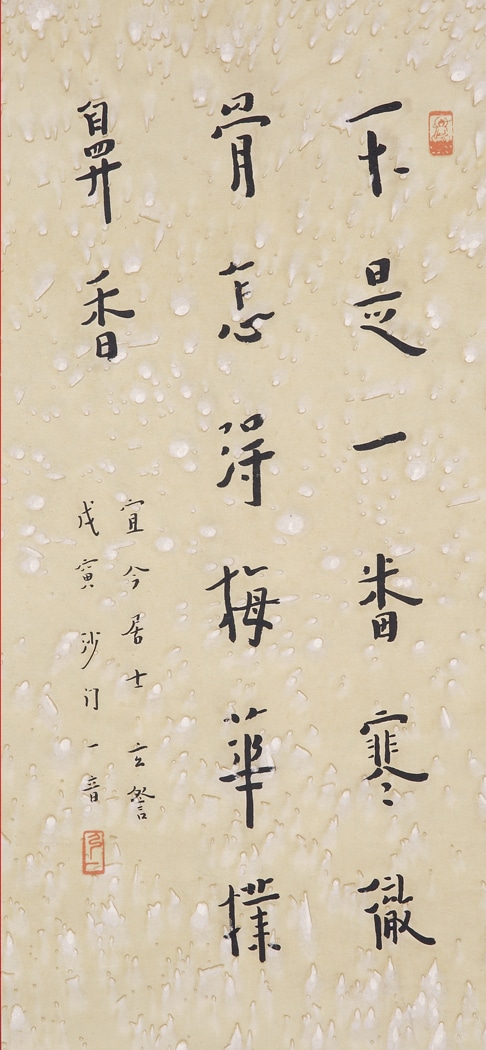 不是一番寒徹
骨怎得梅華撲
鼻香
宜今居士 玄詧
戊寅沙门一音
弘一